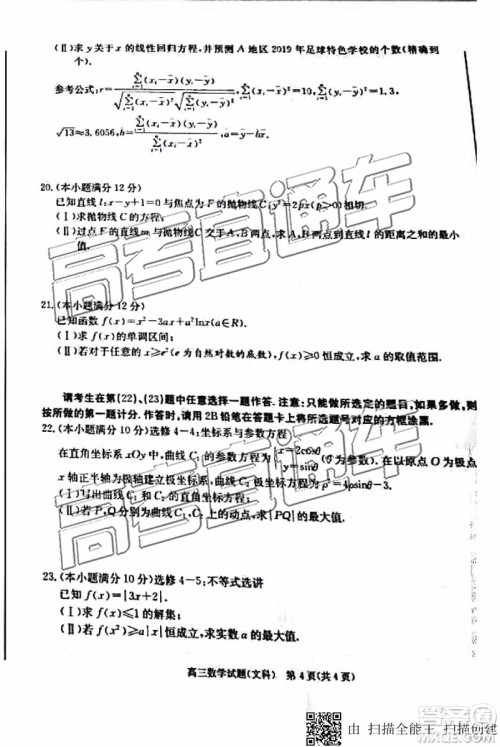 (Ⅱ)求y关于x的线性回归方程,并预测A地区2019年足球特色学校的个数(精确到
个).
参考公式:r=∑(xᵢ-x̄)(yᵢ-ȳ)/(√∑(xᵢ-x̄)²√∑(yᵢ-ȳ)²),∑(xᵢ-x̄)²=10,∑(yᵢ-ȳ)²=1.3,
√13≈3.6056,b̂=∑(xᵢ-x̄)(yᵢ-ȳ)/∑(xᵢ-x̄)²,â=ȳ-b̂x̄.
20.(本小题满分12分)
已知直线l:x-y+1=0与焦点为F的抛物线C:y²=2px(p>0)相切.
(Ⅰ)求抛物线C的方程;
(Ⅱ)过点F的直线m与抛物线C交于A,B两点,求A,B两点到直线l的距离之和的最小
值.
21.(本小题满分12分)
已知函数f(x)=x²-3ax+a²lnx(a∈R).
(Ⅰ)求f(x)的单调区间;
(Ⅱ)若对于任意的x≥e²(e为自然对数的底数),f(x)≥0恒成立,求a的取值范围.
请考生在第(22)、(23)题中任意选择一题作答.注意:只能做所选定的题目,如果多做,则
按所做的第一题计分.作答时,请用2B铅笔在答题卡上将所选题号对应的方框涂黑.
22.(本小题满分10分)选修4-4:坐标系与参数方程
在直角坐标系xOy中,曲线C₁的参数方程为{x=2cosθ y=sinθ(θ为参数).在以原点O为极点
x轴正半轴为极轴建立坐标系,曲线C₂极坐标方程为ρ²=4ρsinθ-3
(Ⅰ)写出曲线C₁和C₂的直角坐标方程;
(Ⅱ)若P,Q分别为曲线C₁,C₂上的动点,求|PQ|的最大值.
23.(本小题满分10分)选修4-5:不等式选讲
已知f(x)=|3x+2|.
(Ⅰ)求f(x)≤1的解集;
(Ⅱ)若f(x²)≥a|x|恒成立,求实数a的最大值.
高三数学试题(文科) 第4页(共4页)
高考直通车
高考直通车
由 扫描全能王 扫描创建